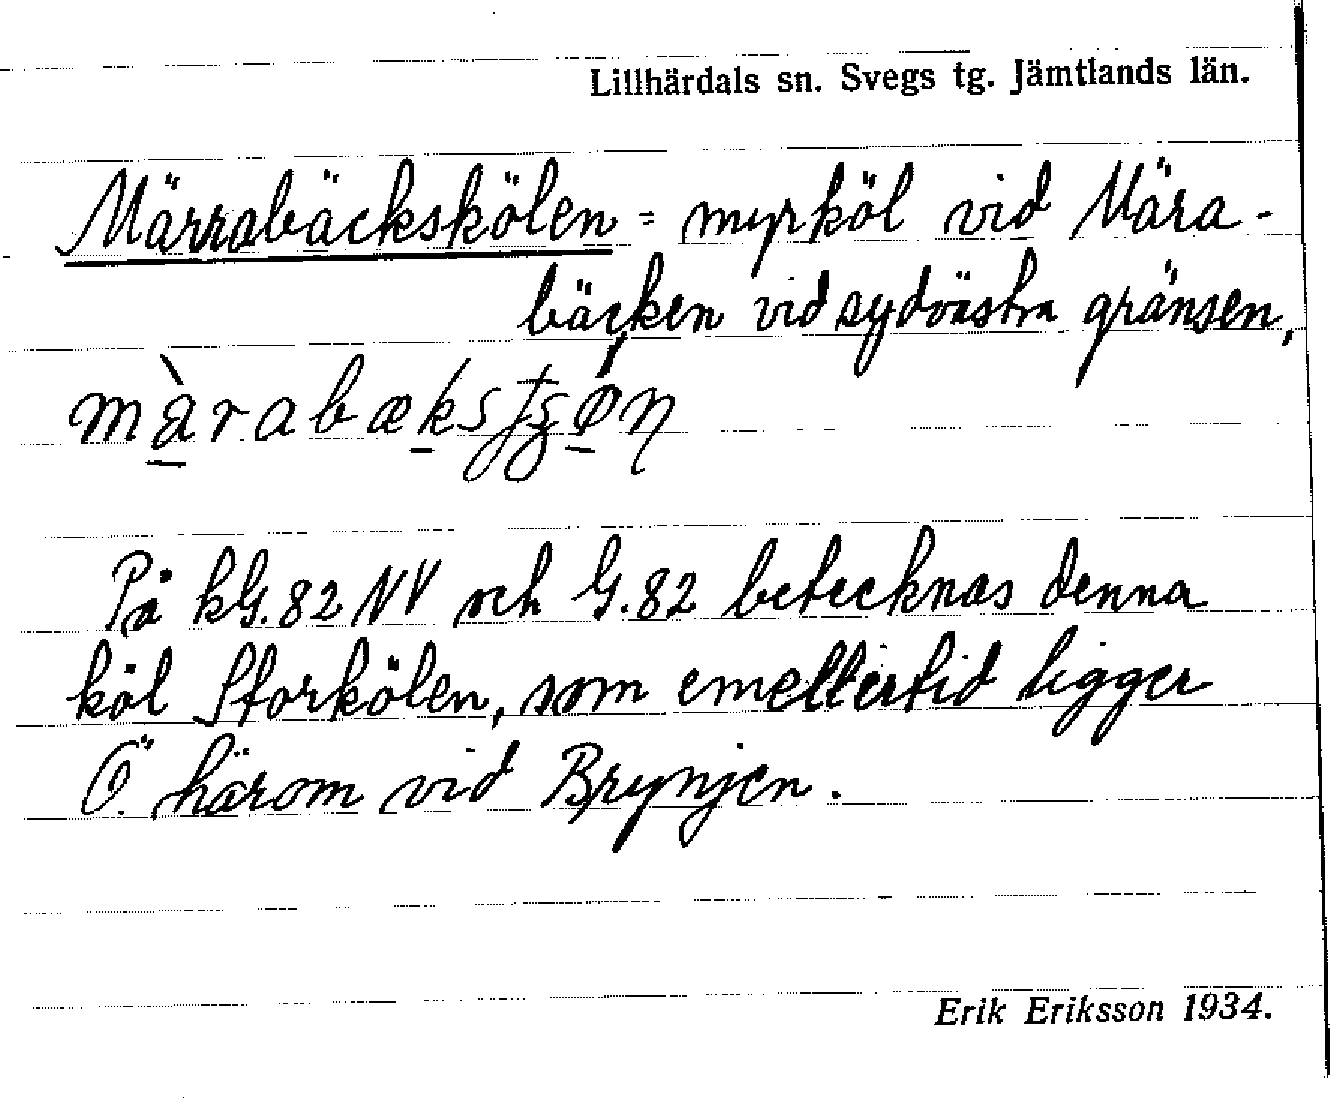 Lillhärdals sn. Svegs tg. Jämtlands län.
Märrabäckskölen = myrköl vid Mära-
bäcken vid sydvästra gränsen.
På kG. 82 NV och G. 82 betecknas denna
köl Storkölen, som emellertid ligger
Ö. härom vid Brynjen.
Erik Eriksson 1934.